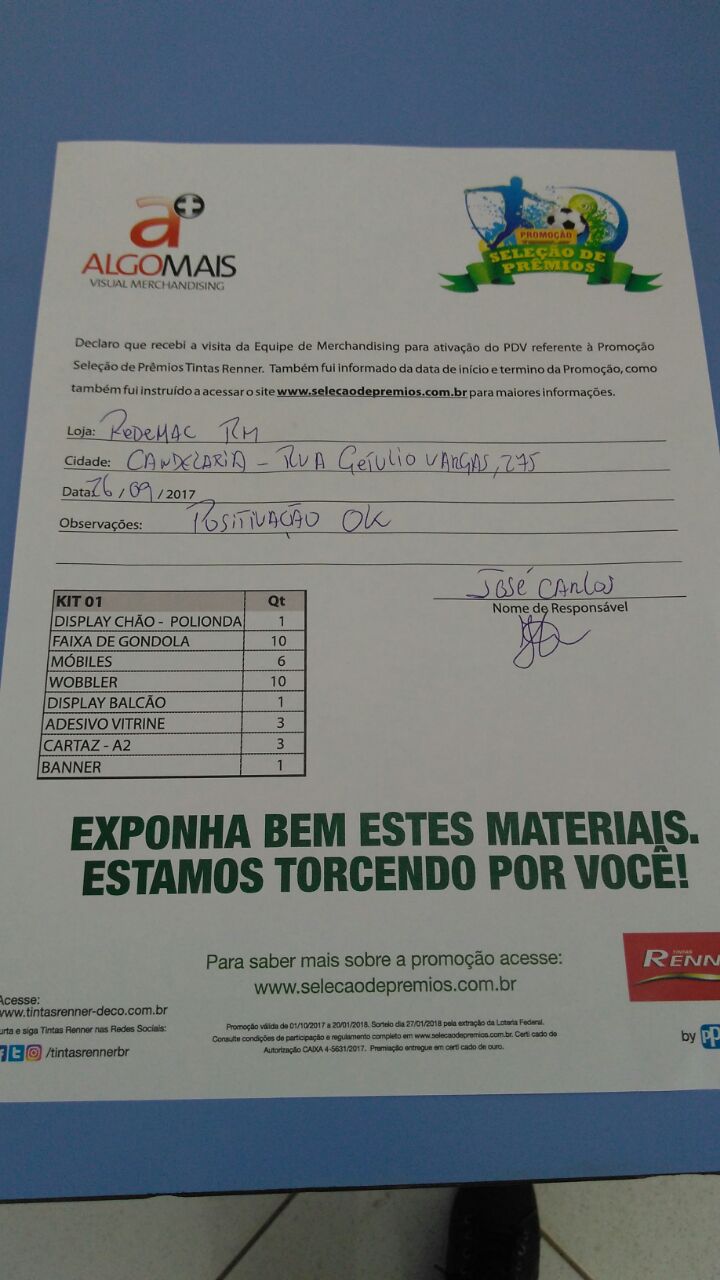 a+
ALGOMAIS
VISUAL MERCHANDISING
PROMOÇÃO
SELEÇÃO DE
PRÊMIOS
Declaro que recebi a visita da Equipe de Merchandising para ativação do PDV referente à Promoção
Seleção de Prêmios Tintas Renner. Também fui informado da data de início e termino da Promoção, como
também fui instruído a acessar o site www.selecaodepremios.com.br para maiores informações.
Loja: REDEMAC RM
Cidade: CANDELARIA - RUA GETULIO VARGAS, 275
Data: 26/09/2017
Observações: POSITIVAÇÃO OK
JOSÉ CARLOS
Nome de Responsável
KIT 01 Qt
DISPLAY CHÃO - POLIONDA 1
FAIXA DE GONDOLA 10
MÓBILES 6
WOBBLER 10
DISPLAY BALCÃO 1
ADESIVO VITRINE 3
CARTAZ - A2 3
BANNER 1
EXPONHA BEM ESTES MATERIAIS.
ESTAMOS TORCENDO POR VOCÊ!
Para saber mais sobre a promoção acesse:
www.selecaodepremios.com.br
TINTAS
RENN
Acesse:
www.tintasrenner-deco.com.br
urta e siga Tintas Renner nas Redes Sociais:
/tintasrennerbr
Promoção válida de 01/10/2017 a 20/01/2018. Sorteio dia 27/01/2018 pela extração da Loteria Federal.
Consulte condições de participação e regulamento completo em www.selecaodepremios.com.br. Certi cado de
Autorização CAIXA 4-5631/2017. Premiação entregue em certi cado de ouro.
by PP